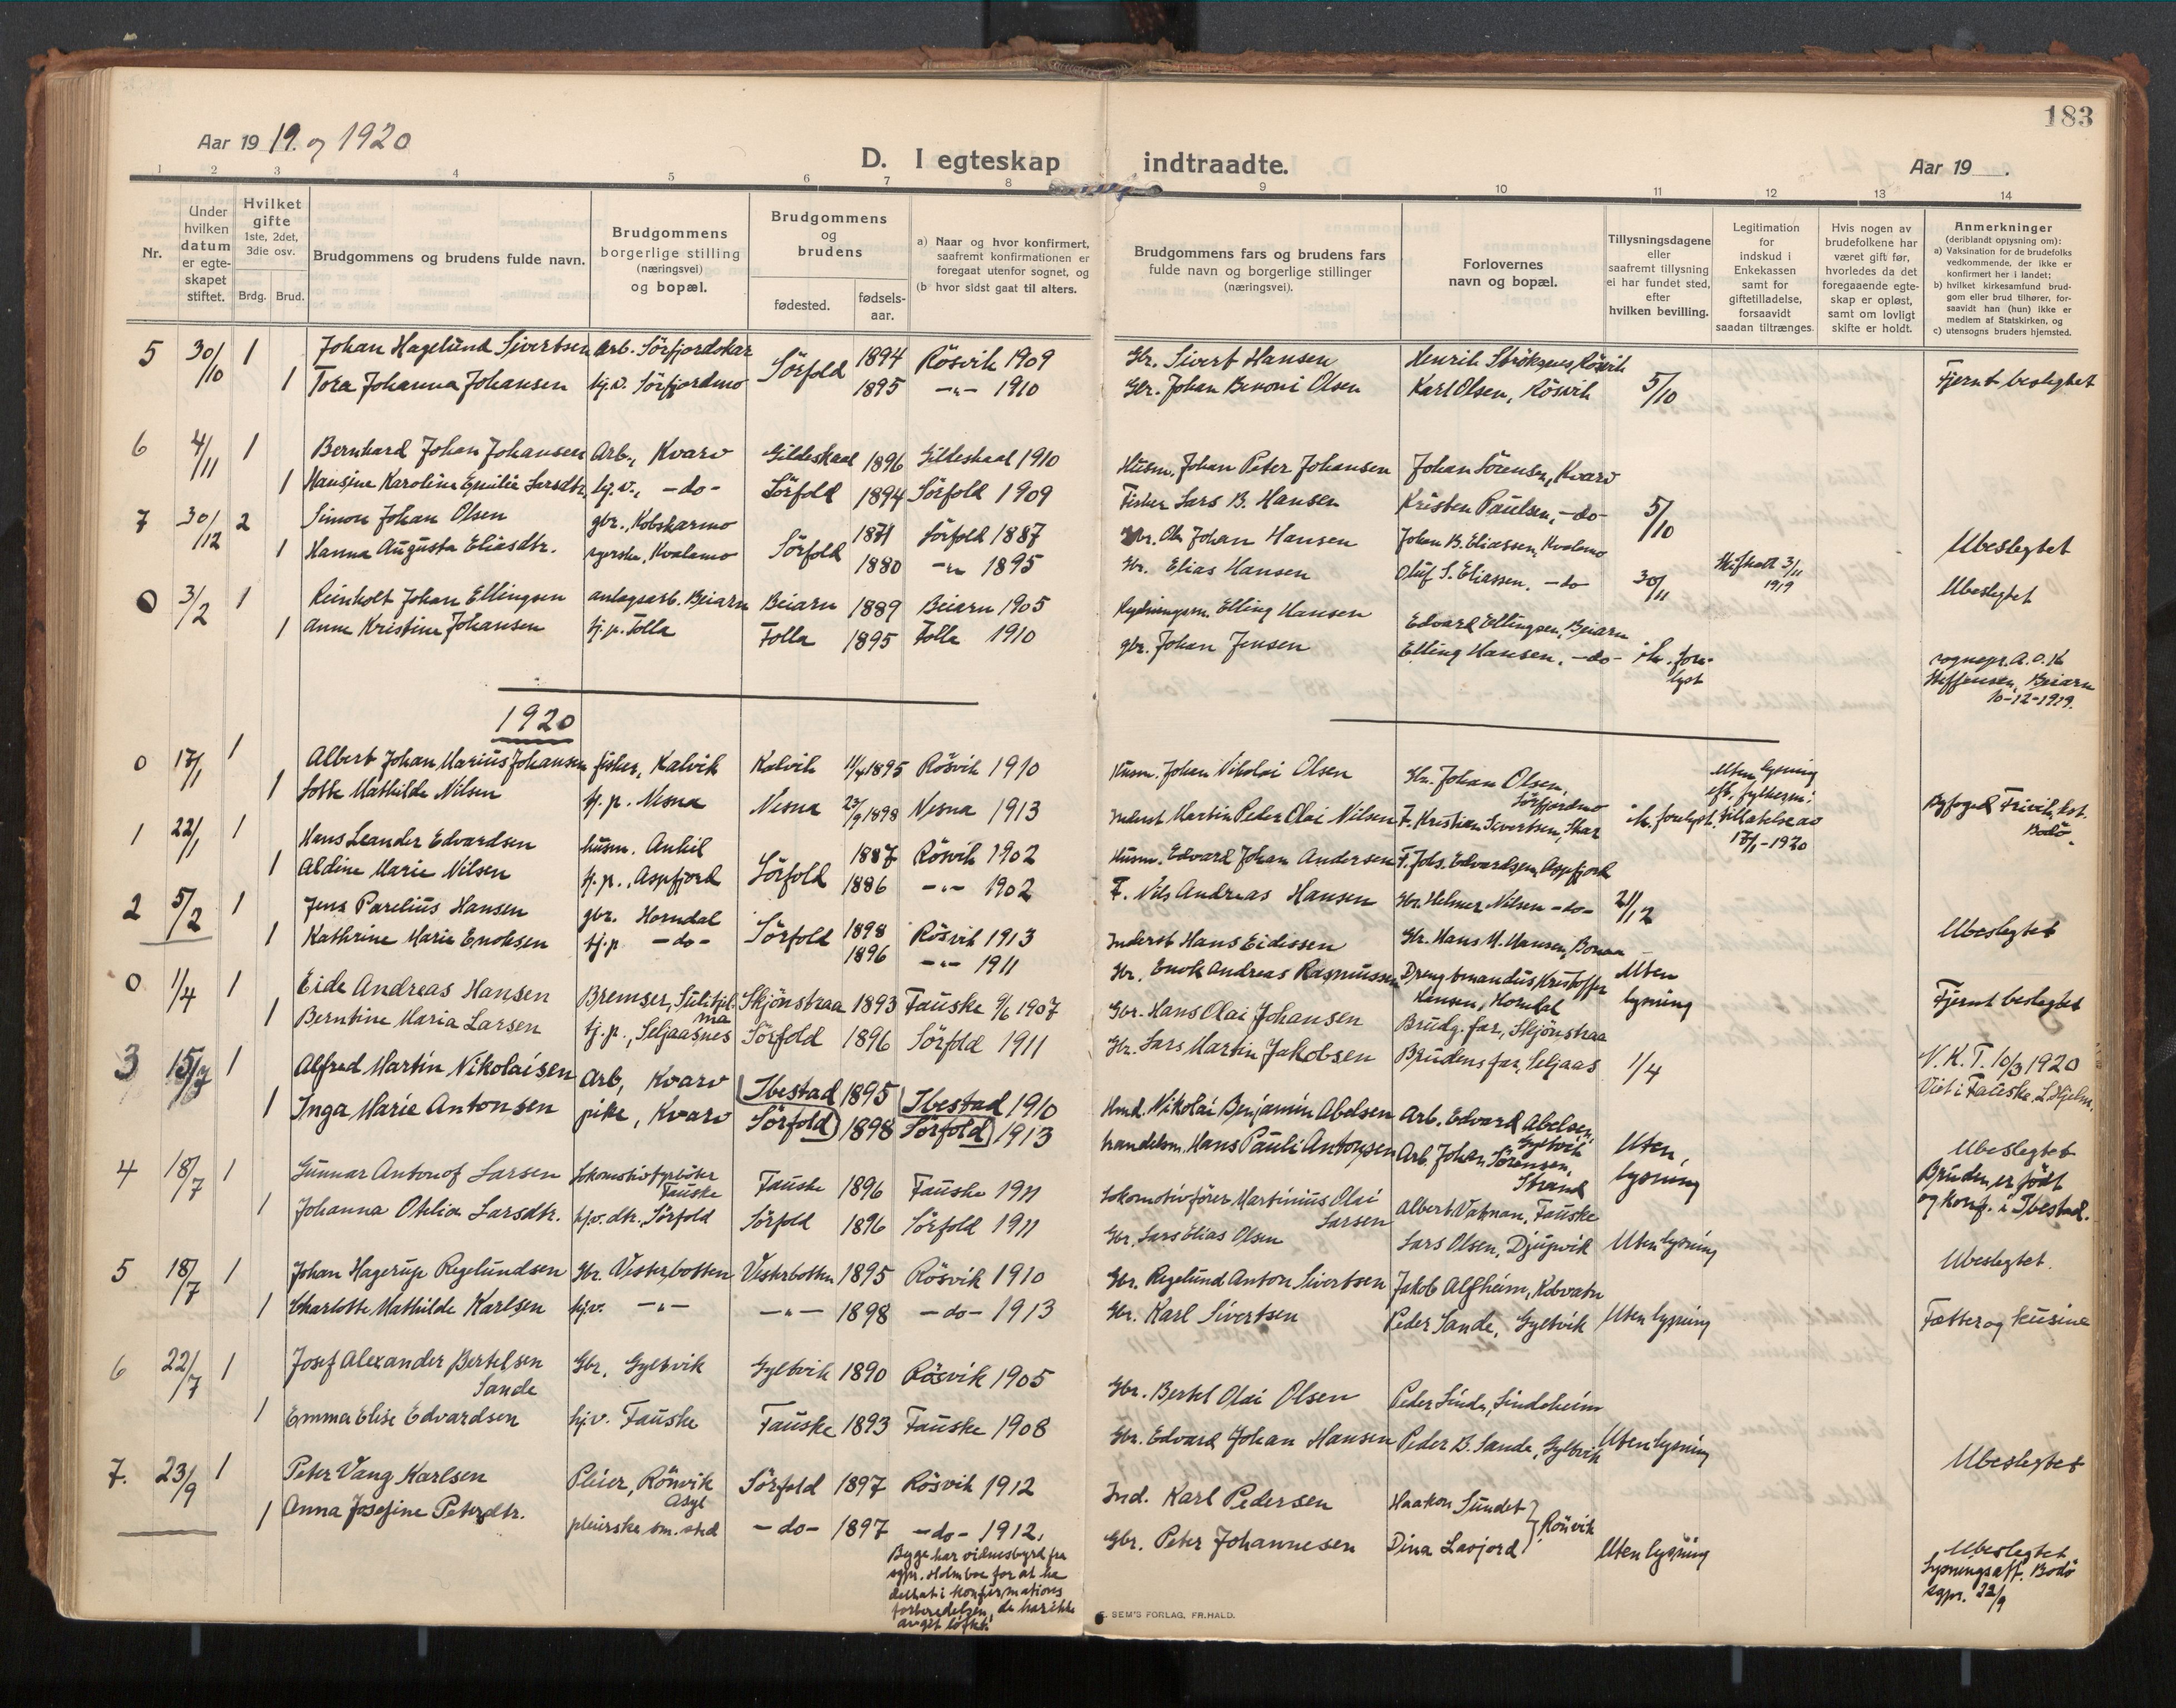 183
Aar 1919. og 1920
D. I egteskap indtraadte.
Aar 19   .
1 2 3 4 5 6 7 8 9 10 11 12 13 14
Nr.
Under hvilken datum er egteskapet stiftet.
Hvilket gifte 1ste, 2det, 3die osv.
Brdg. Brud.
Brudgommens og brudens fulde navn.
Brudgommens borgerlige stilling (næringsvei) og bopæl.
Brudgommens og brudens
fødested.
fødsels-aar.
a) Naar og hvor konfirmert, saafremt konfirmationen er foregaat utenfor sognet, og
(b hvor sidst gaat til alters.
Brudgommens fars og brudens fars fulde navn og borgerlige stillinger (næringsvei).
Forlovernes navn og bopæl.
Tillysningsdagene eller saafremt tillysning ei har fundet sted, efter hvilken bevilling.
Legitimation for indskud i Enkekassen samt for giftetilladelse, forsaavidt saadan tiltrænges.
Hvis nogen av brudefolkene har været gift før, hvorledes da det foregaaende egteskap er opløst, samt om lovligt skifte er holdt.
Anmerkninger (deriblandt oplysning om):
a) Vaksination for de brudefolks vedkommende, der ikke er konfirmert her i landet;
b) hvilket kirkesamfund brudgom eller brud tilhører, forsaavidt han (hun) ikke er medlem af Statskirken, og
c) utensogns bruders hjemsted.
5 30/10 1 Johan Hagelund Sivertsen Arb. Sörfjordskar Sörfold 1894 Rösvik 1909 Gbr. Sivert Hansen Henrik Ströksnes, Rösvik
1 Tora Johanna Johansen hj.v. Sörfjordmo 1895 -"- 1910 Gbr. Johan Benoni Olsen Karl Olsen, Rösvik 5/10 Fjernt beslegtet
6 4/11 1 Bernhard Johan Johansen Arb., Kvarv Gildeskaal 1896 Gildeskaal 1910 Husm. Johan Peter Johansen Johan Sörensen, Kvarv
1 Hansine Karoline Emilie Larsdtr. hj.v., -do- Sörfold 1894 Sörfold 1909 Fisker Lars B. Hansen Kristen Paulsen, -do- 5/10 Ubeslegtet
7 30/12 2 Simon Johan Olsen gbr., Kobskarmo Sörfold 1871 Sörfold 1887 Gbr. Ole Johan Hansen Johan B. Eliassen, Kvalamo
1 Hanna Augusta Eliasdtr. syerske, Kvalamo 1880 -"- 1895 Gbr. Elias Hansen Oluf S. Eliassen, -do- 30/11 Skifteatt 3/11 1919 Ubeslegtet
0 3/2 1 Reinholt Johan Ellingsen anlagsarb. Beiarn Beiarn 1889 Beiarn 1905 Rydningsm. Elling Hansen Edvard Ellingsen, Beiarn
1 Anne Kristine Johansen tj.p. Folla Folla 1895 Folla 1910 gbr. Johan Jensen Elling Hansen, -do- ik. fore-lyst sognepr. A.O.K Steffensen, Beiarn 10-12-1919.
1920
0 17/1 1 Albert Johan Marius Johansen fisker, Kalvik Kalvik 11/4 1895 Rösvik 1910 Husm. Johan Nikolai Olsen Gbr. Johan Olsen, Sörfjordmo
1 Lotte Mathilde Nilsen tj.p. Nesna Nesna 23/9 1898 Nesna 1913 Inderst Martin Peder Olai Nilsen F. Kristian Sivertsen, Skar ik. forelyst. Uten lysning eft. fylkesm: tillatelse av 17/1-1920 Byfoged Frivik, kst. Bodö.
1 22/1 1 Hans Leander Edvardsen husm. Ankil Sörfold 1887 Rösvik 1902 Husm. Edvard Johan Andersen F. Johs. Edvardsen, Aspfjord
1 Aldine Marie Nilsen tj.p., Aspfjord 1886 -"- 1902 F. Nils Andreas Hansen Gbr. Helmer Nilsen -do- 21/12 Ubeslegtet
2 5/2 1 Jens Parelius Hansen gbr. Horndal Sörfold 1898 Rösvik 1913 Inderst Hans Eidissen Gbr. Hans M. Hansen, Bonaa
1 Kathrine Marie Enoksen tj.p -do- 1896 -"- 1911 Gbr. Enok Andreas Rasmussen Dreng Amandus Kristoffer Hansen, Horndal Uten lysning Fjernt beslegtet
0 1/4 1 Eide Andreas Hansen Bremser, Sulitjelma Skjönstraa 1893 Fauske 9/6 1907 Gbr. Hans Olai Johansen Brudg. far, Skjönstraa
1 Berntine Maria Larsen tj.p., Seljaasnes Sörfold 1896 Sörfold 1911 Gbr. Lars Martin Jakobsen Brudens far, Seljaas 1/4 V.K.T. 10/3 1920 Viet i Fauske, L. Hjelm.
3 15/7 1 Alfred Martin Nikolaisen Arb, Kvarv Ibestad 1895 Ibestad 1910 Hmd. Nikolai Benjamin Abelsen Arb. Edvard Abelsen, Gyltvik
1 Inga Marie Antonsen pike, Kvarv Sörfold 1898 Sörfold 1913 handelsm. Hans Pauli Antonsen Arb. Johan Sörensen, Strand Uten lysning Ubeslegtet Bruden er födt og konf. i Ibestad.
4 18/7 1 Gunnar Antonof Larsen Lokomotivfyrböter Fauske Fauske 1896 Fauske 1911 Lokomotivförer Martinius Olai Larsen Albert Vatnan, Fauske
1 Johanna Otelia Larsdtr. hjv. dtr. Sörfold Sörfold 1896 Sörfold 1911 Gbr. Lars Elias Olsen Lars Olsen, Djupvik Uten lysning Ubeslegtet.
5 18/7 1 Johan Hagerup Regelundsen Gbr. Vesterbotten Vesterbotten 1895 Rösvik 1910 Gbr. Regelund Anton Sivertsen Jakob Alfheim, Kobvatn
1 Charlotte Mathilde Karlsen hjv. -"- -"- 1898 -do- 1913 Gbr. Karl Sivertsen Peder Sande, Gyltvik Uten lysning Fætter og kusine
6 22/7 1 Josef Alexander Bertelsen Sande Gbr. Gyltvik Gyltvik 1890 Rösvik 1905 Gbr. Bertel Olai Olsen Peder Linder, Lindeheim
1 Emma Elise Edvardsen hjv. Fauske Fauske 1893 Fauske 1908 Gbr. Edvard Johan Hansen Peder B. Sande, Gyltvik Uten lysning Ubeslegtet
7. 23/9 1 Peter Vang Karlsen Pleier, Rönvik asyl Sörfold 1897 Rösvik 1912 Ind. Karl Pedersen Haakon Sundet } Rönvik
1 Anna Josefine Petersdtr. pleierske sm. sted -do- 1897 -do- 1912. Gbr. Peter Johannesen Dina Lavjord Uten lysning Ubeslegtet Lysningsatt. Bodö sgpr. 22/9
Begge har vidnesbyrd fra
sgpr. Holmboe for at ha
deltat i konfirmations
forberedelsen, de har ikke
avgit löftet.
E. SEM'S FORLAG, FR.HALD.